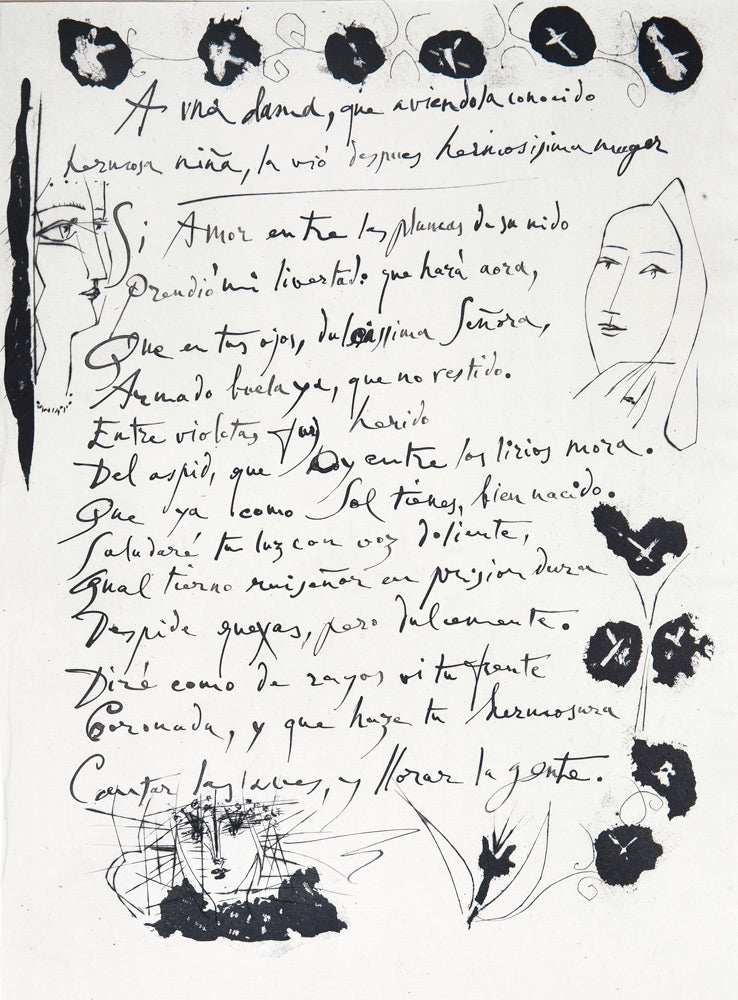 A una dama, que aviendola conocido
hermosa niña, la vió despues hermosisima muger
Si Amor entre las plumas de su nido
Prendió mi livertad: que hará aora,
Que en tus ojos, dulcissima Señora,
Armado buela ya, que no vestido.
Entre violetas fuy herido
Del aspid, que oy entre los lirios mora.
Que ya como Sol tienes, bien nacido.
Saludaré tu luz con voz doliente,
Qual tierno ruiseñor en prision dura
Despide quexas, pero dulcemente.
Diré como de rayos vi tu frente
Coronada, y que haze tu hermosura
Cantar las aves, y llorar la gente.